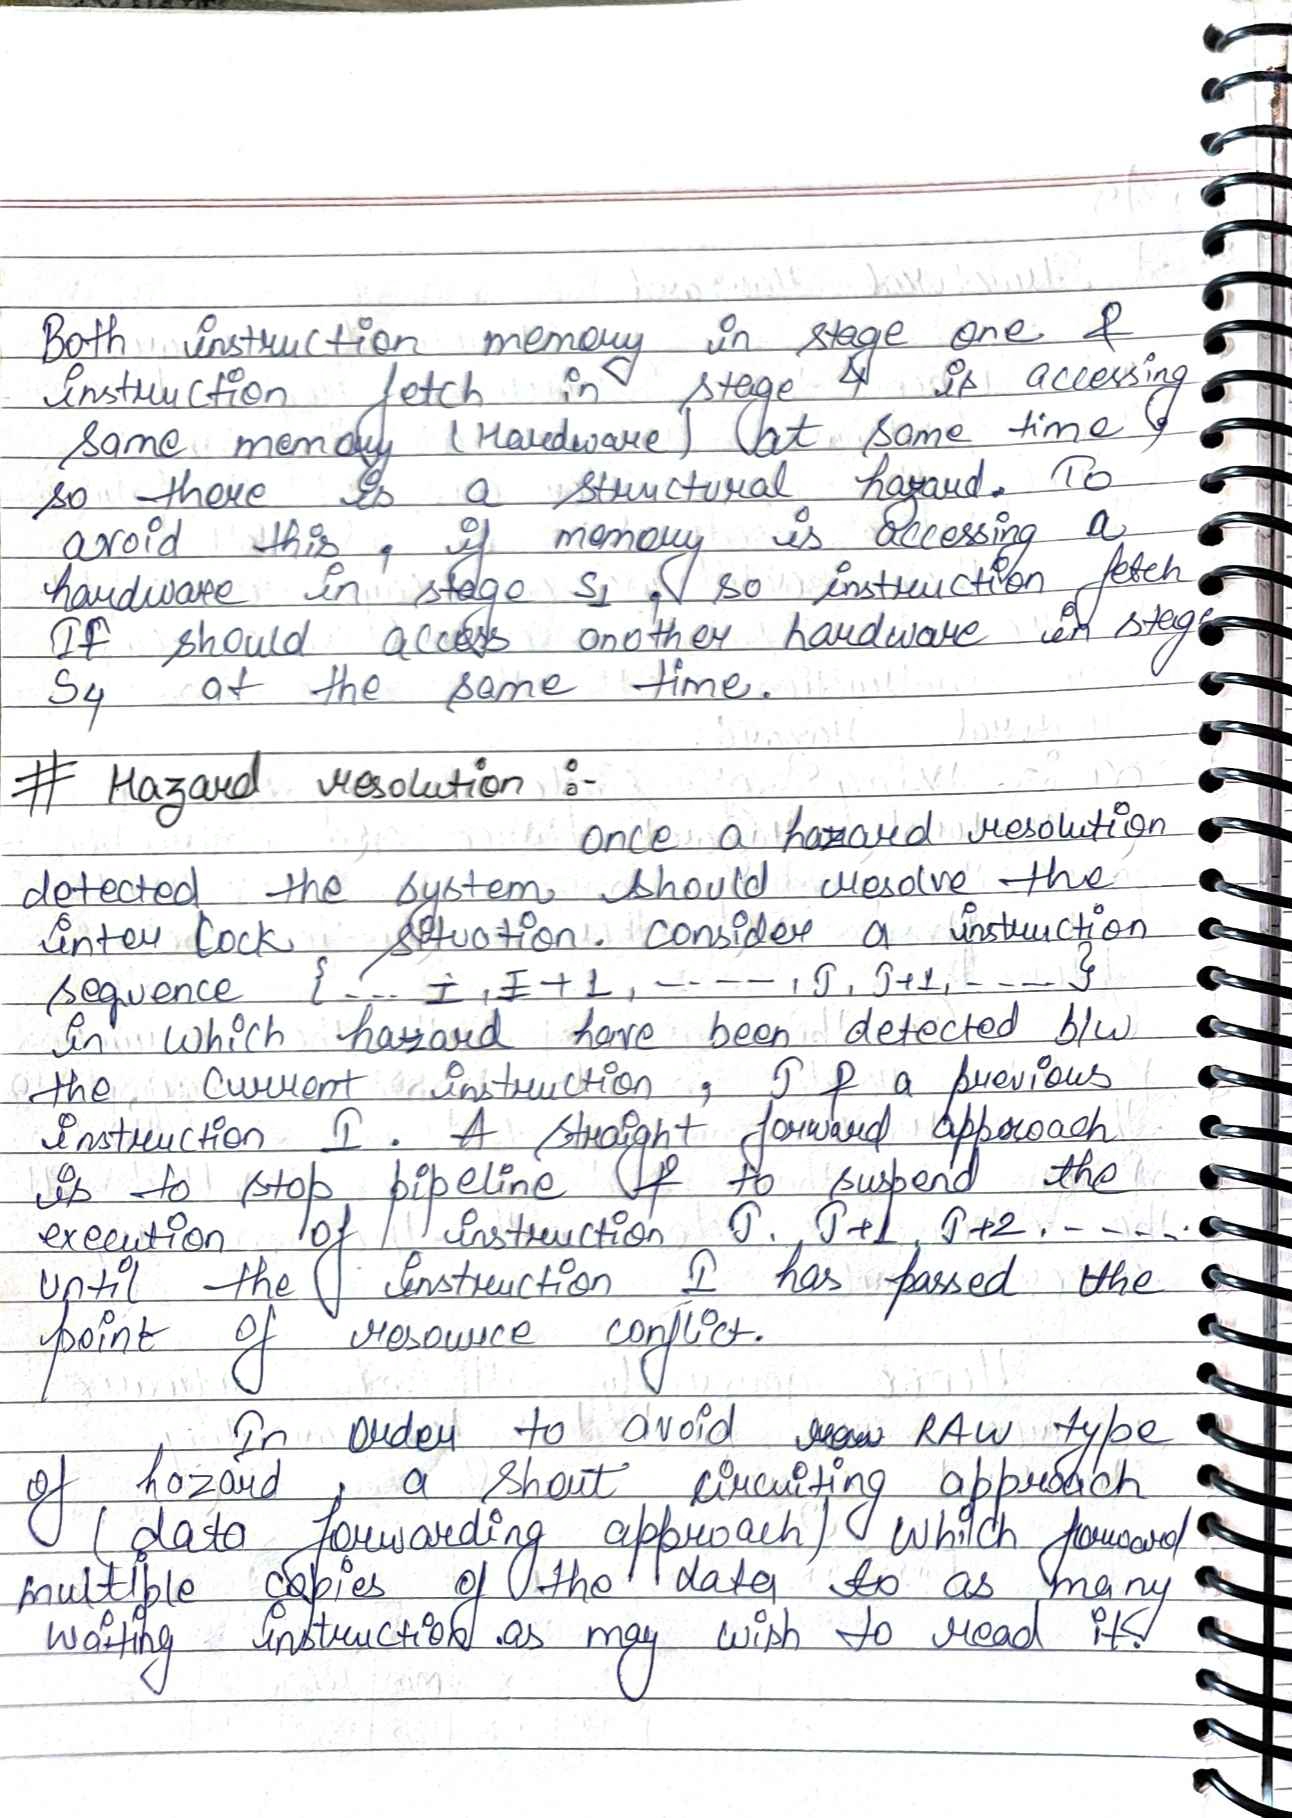 Both instruction memory in stage one &
instruction fetch in stage 4 is accessing
same memory (Hardware) at same time,
so there is a structural hazard. To
avoid this, if memory is accessing a
hardware in stage S1, so instruction fetch
IF should access another hardware in stage
S4 at the same time.
# Hazard resolution :-
once a hazard resolution
detected the system should resolve the
inter lock situation. consider a instruction
sequence {... I, I+1, -----, J, J+1, ----}
in which hazard have been detected b/w
the current instruction, J & a previous
instruction I. A straight forward approach
is to stop pipeline & to suspend the
execution of instruction J, J+1, J+2.----.
until the instruction I has passed the
point of resource conflict.
In order to avoid RAW type
of hazard, a short circuiting approach
(data forwarding approach) which forward
multiple copies of the data to as many
waiting instruction as may wish to read it.